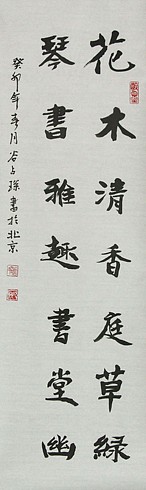 花木清香庭草綠
琴書雅趣書堂幽
癸卯年春月谷占琛書於北京